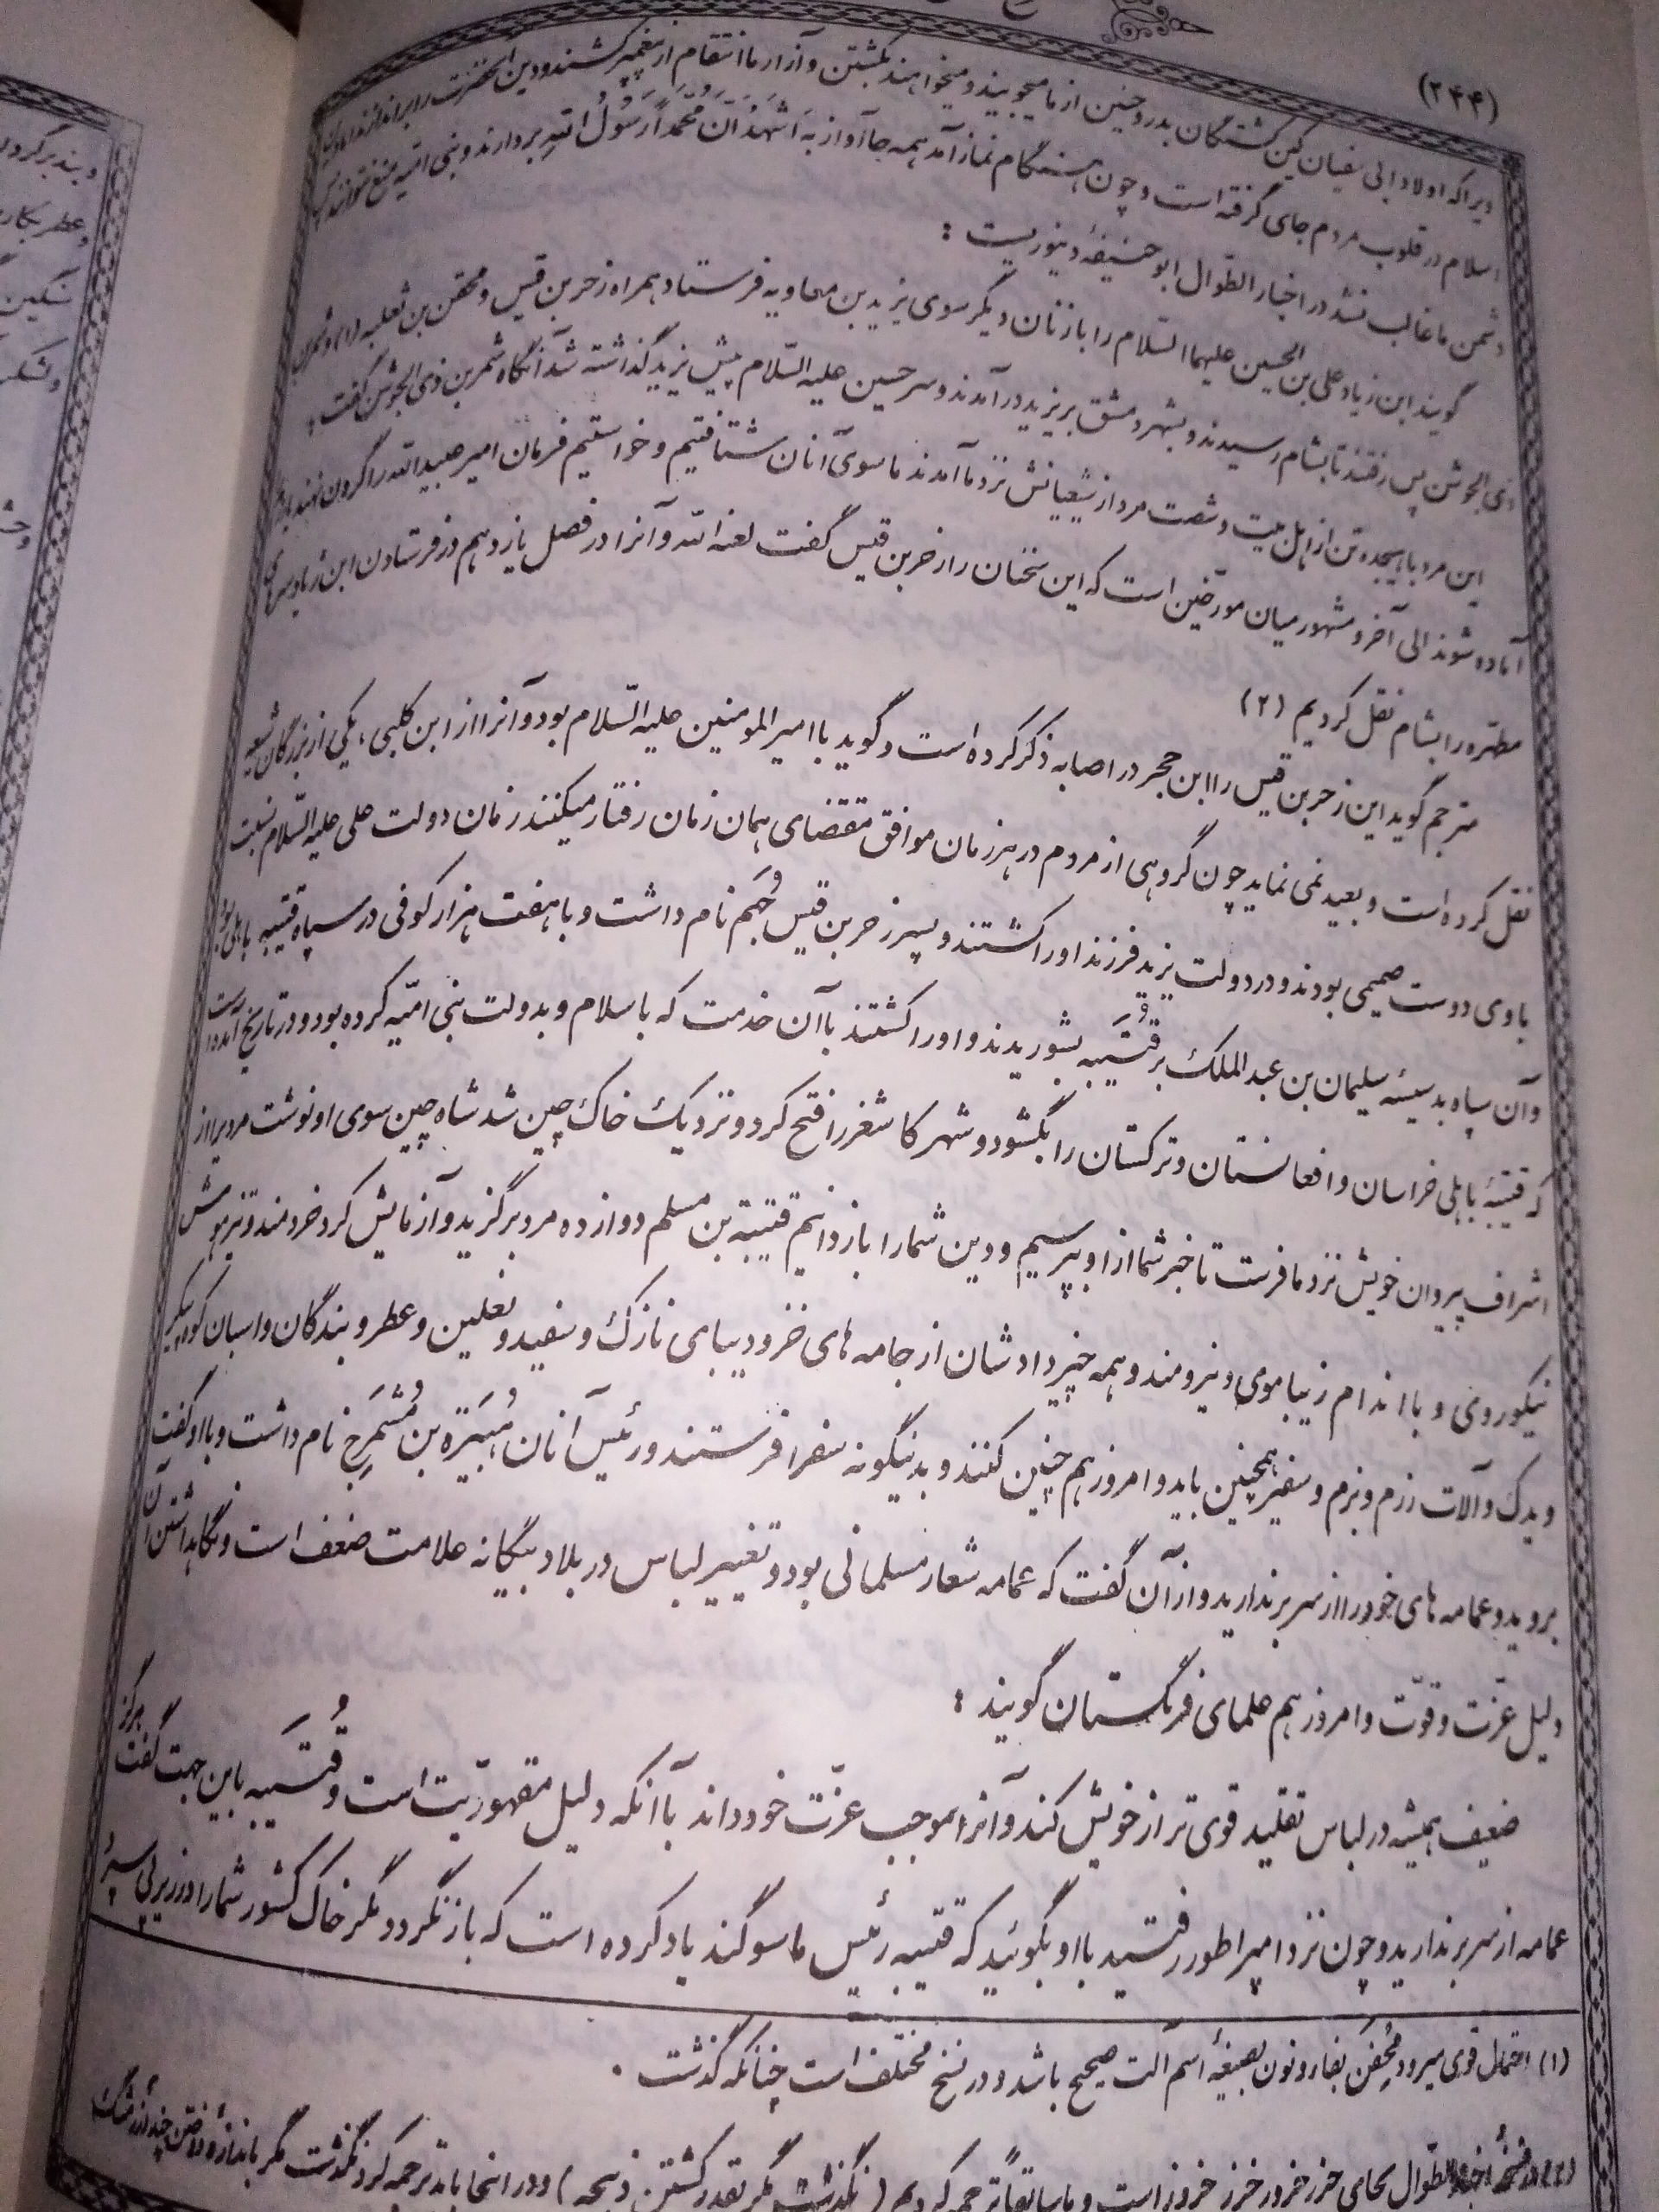 (۲۴۴)
ویرا که اولاد ابی سفیان کین کشتگان بدر و حنین از ما میجویند و میخواهند بکشتن و آزار ما انتقام از پیغمبر کشند و دین آنحضرت را براندازند
اسلام در قلوب مردم جای گرفته است و چون هنگام نماز آمد همه جا آواز به اَشْهَدُ اَنَّ مُحَمَّداً رَسُولُ اللهِ بردارند و بنی امیه منع نتوانند پس
دشمن ما غالب نشد در اخبار الطوال ابو حنیفهٔ دینوریست :
گویند ابن زیاد علی بن الحسین علیهما السلام را با زنان دیگر سوی یزید بن معاویه فرستاد همراه زحر بن قیس و محقن بن ثعلبه (۱) و شمر بن
ذی الجوشن پس رفتند تا بشام رسیدند و بشهر دمشق بر یزید درآمدند و سر حسین علیه السّلام پیش یزید گذاشته شد آنگاه شمر بن ذی الجوشن گفت
این مرد با هیجده تن از اهل بیت و شصت مرد از شیعیانش نزد ما آمدند ما سوی آنان شتافتیم و خواستیم فرمان امیر عبیدالله را گردن نهند یا جنگ را
آماده شوند الی آخر و مشهور میان مورّخین است که این سخنان را زحر بن قیس گفت لعنه الله و آنرا در فصل یازدهم در فرستادن ابن زیاد سرهای
مطهّره را بشام نقل کردیم (۲)
مترجم گوید این زحر بن قیس را ابن حجر در اصابه ذکر کرده است و گوید با امیر المومنین علیه السّلام بود و آنرا از ابن کلبی ، یکی از بزرگان شیعه
نقل کرده است و بعید نمی نماید چون گروهی از مردم در هر زمان موافق مقتضای همان زمان رفتار میکنند زمان دولت علی علیه السّلام نسبت
با وی دوست صمیمی بودند و در دولت یزید فرزند او را کشتند و پسر زحر بن قیس جُهَم نام داشت و با هفت هزار کوفی در سپاه قتیبه باهلی بود
و آن سپاه بدسیسهٔ سلیمان بن عبد الملک بر قُتَیبه بشوریدند و او را کشتند با آن خدمت که باسلام و بدولت بنی امیّه کرده بود و در تاریخ آمده است
که قتیبهٔ باهلی خراسان و افغانستان و ترکستان را بگشود و شهر کاشغر را فتح کرد و نزدیک خاک چین شد شاه چین سوی او نوشت مردی را از
اشراف پیروان خویش نزد ما فرست تا خبر شما از او بپرسیم و دین شما را باز دانیم قتیبة بن مسلم دوازده مرد برگزید و آزمایش کرد خردمند و تیزهوش
نیکو روی و با اندام زیبا موی و نیرومند و همه چیز دادشان از جامه های خز و دیبای نازک و سفید و نعلین و عطر و بندگان و اسبان کوه پیکر
و یدک و آلات رزم و بزم و سفیر همچنین باید و امروز هم چنین کنند و بدینگونه سفرا فرستند و رئیس آنان هُبَیرَة بن مُشَمرِج نام داشت و با او گفت
بروید و عمامه های خود را از سر برندارید و از آن گفت که عمامه شعار مسلمانی بود و تغییر لباس در بلاد بیگانه علامت ضعف است و نگاهداشتن آن
دلیل عزّت و قوّت و امروز هم علمای فرنگستان گویند :
ضعیف همیشه در لباس تقلید قوی تر از خویش کند و آنرا موجب عزّت خود داند با آنکه دلیل مقهوریّت است و قُتَیبه باین جهت گفت هرگز
عمامه از سر برندارید و چون نزد امپراطور رفتید با او بگوئید که قتیبه رئیس ما سوگند یاد کرده است که باز نگردد مگر خاک کشور شما را در زیر پی سپرد
(۱) احتمال قوی میرود مِحفَن بفاء و نون بصیغهٔ اسم آلت صحیح باشد و در نسخ مختلف است چنانکه گذشت .
(۲) در نسخهٔ اخبار الطوال بجای جزر جزور خزر خزور است و ما سابقاً ترجمه کردیم (نگذشت مگر بقدر کشتن ذبیحه) و در اینجا باید ترجمه کرد نگذشت مگر باندازهٔ